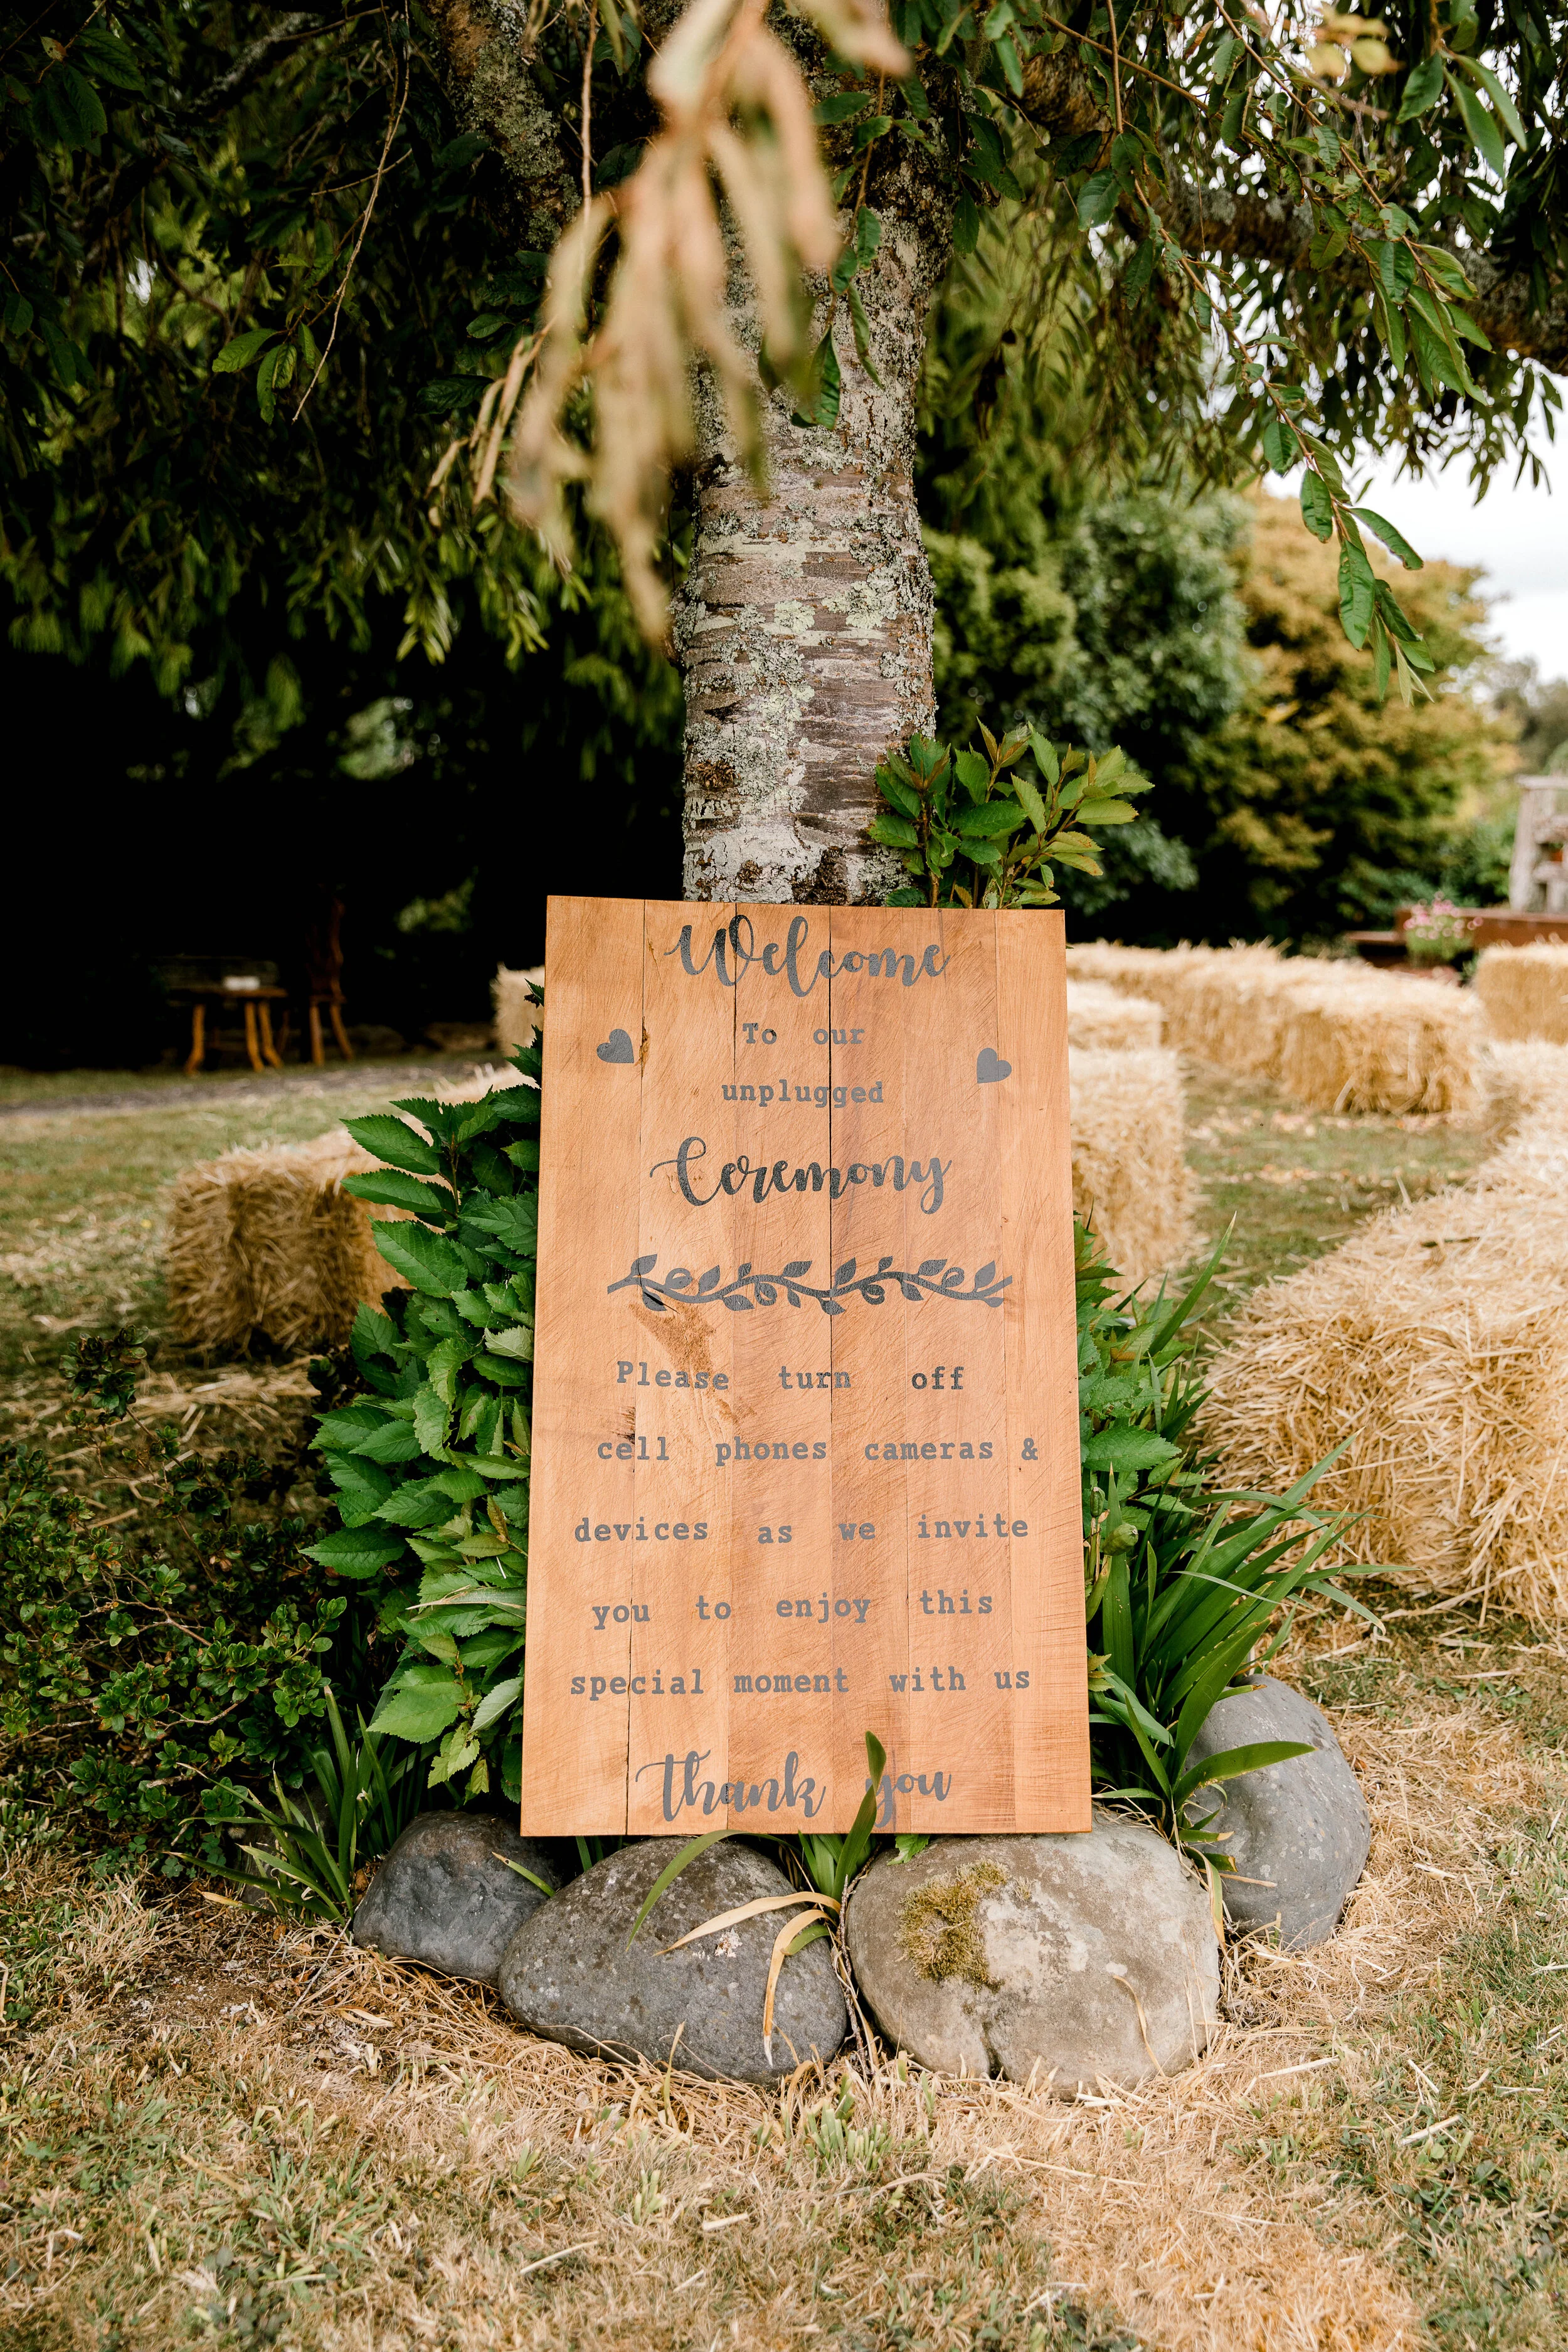 Welcome
To our
unplugged
Ceremony
Please turn off
cell phones cameras &
devices as we invite
you to enjoy this
special moment with us
Thank you